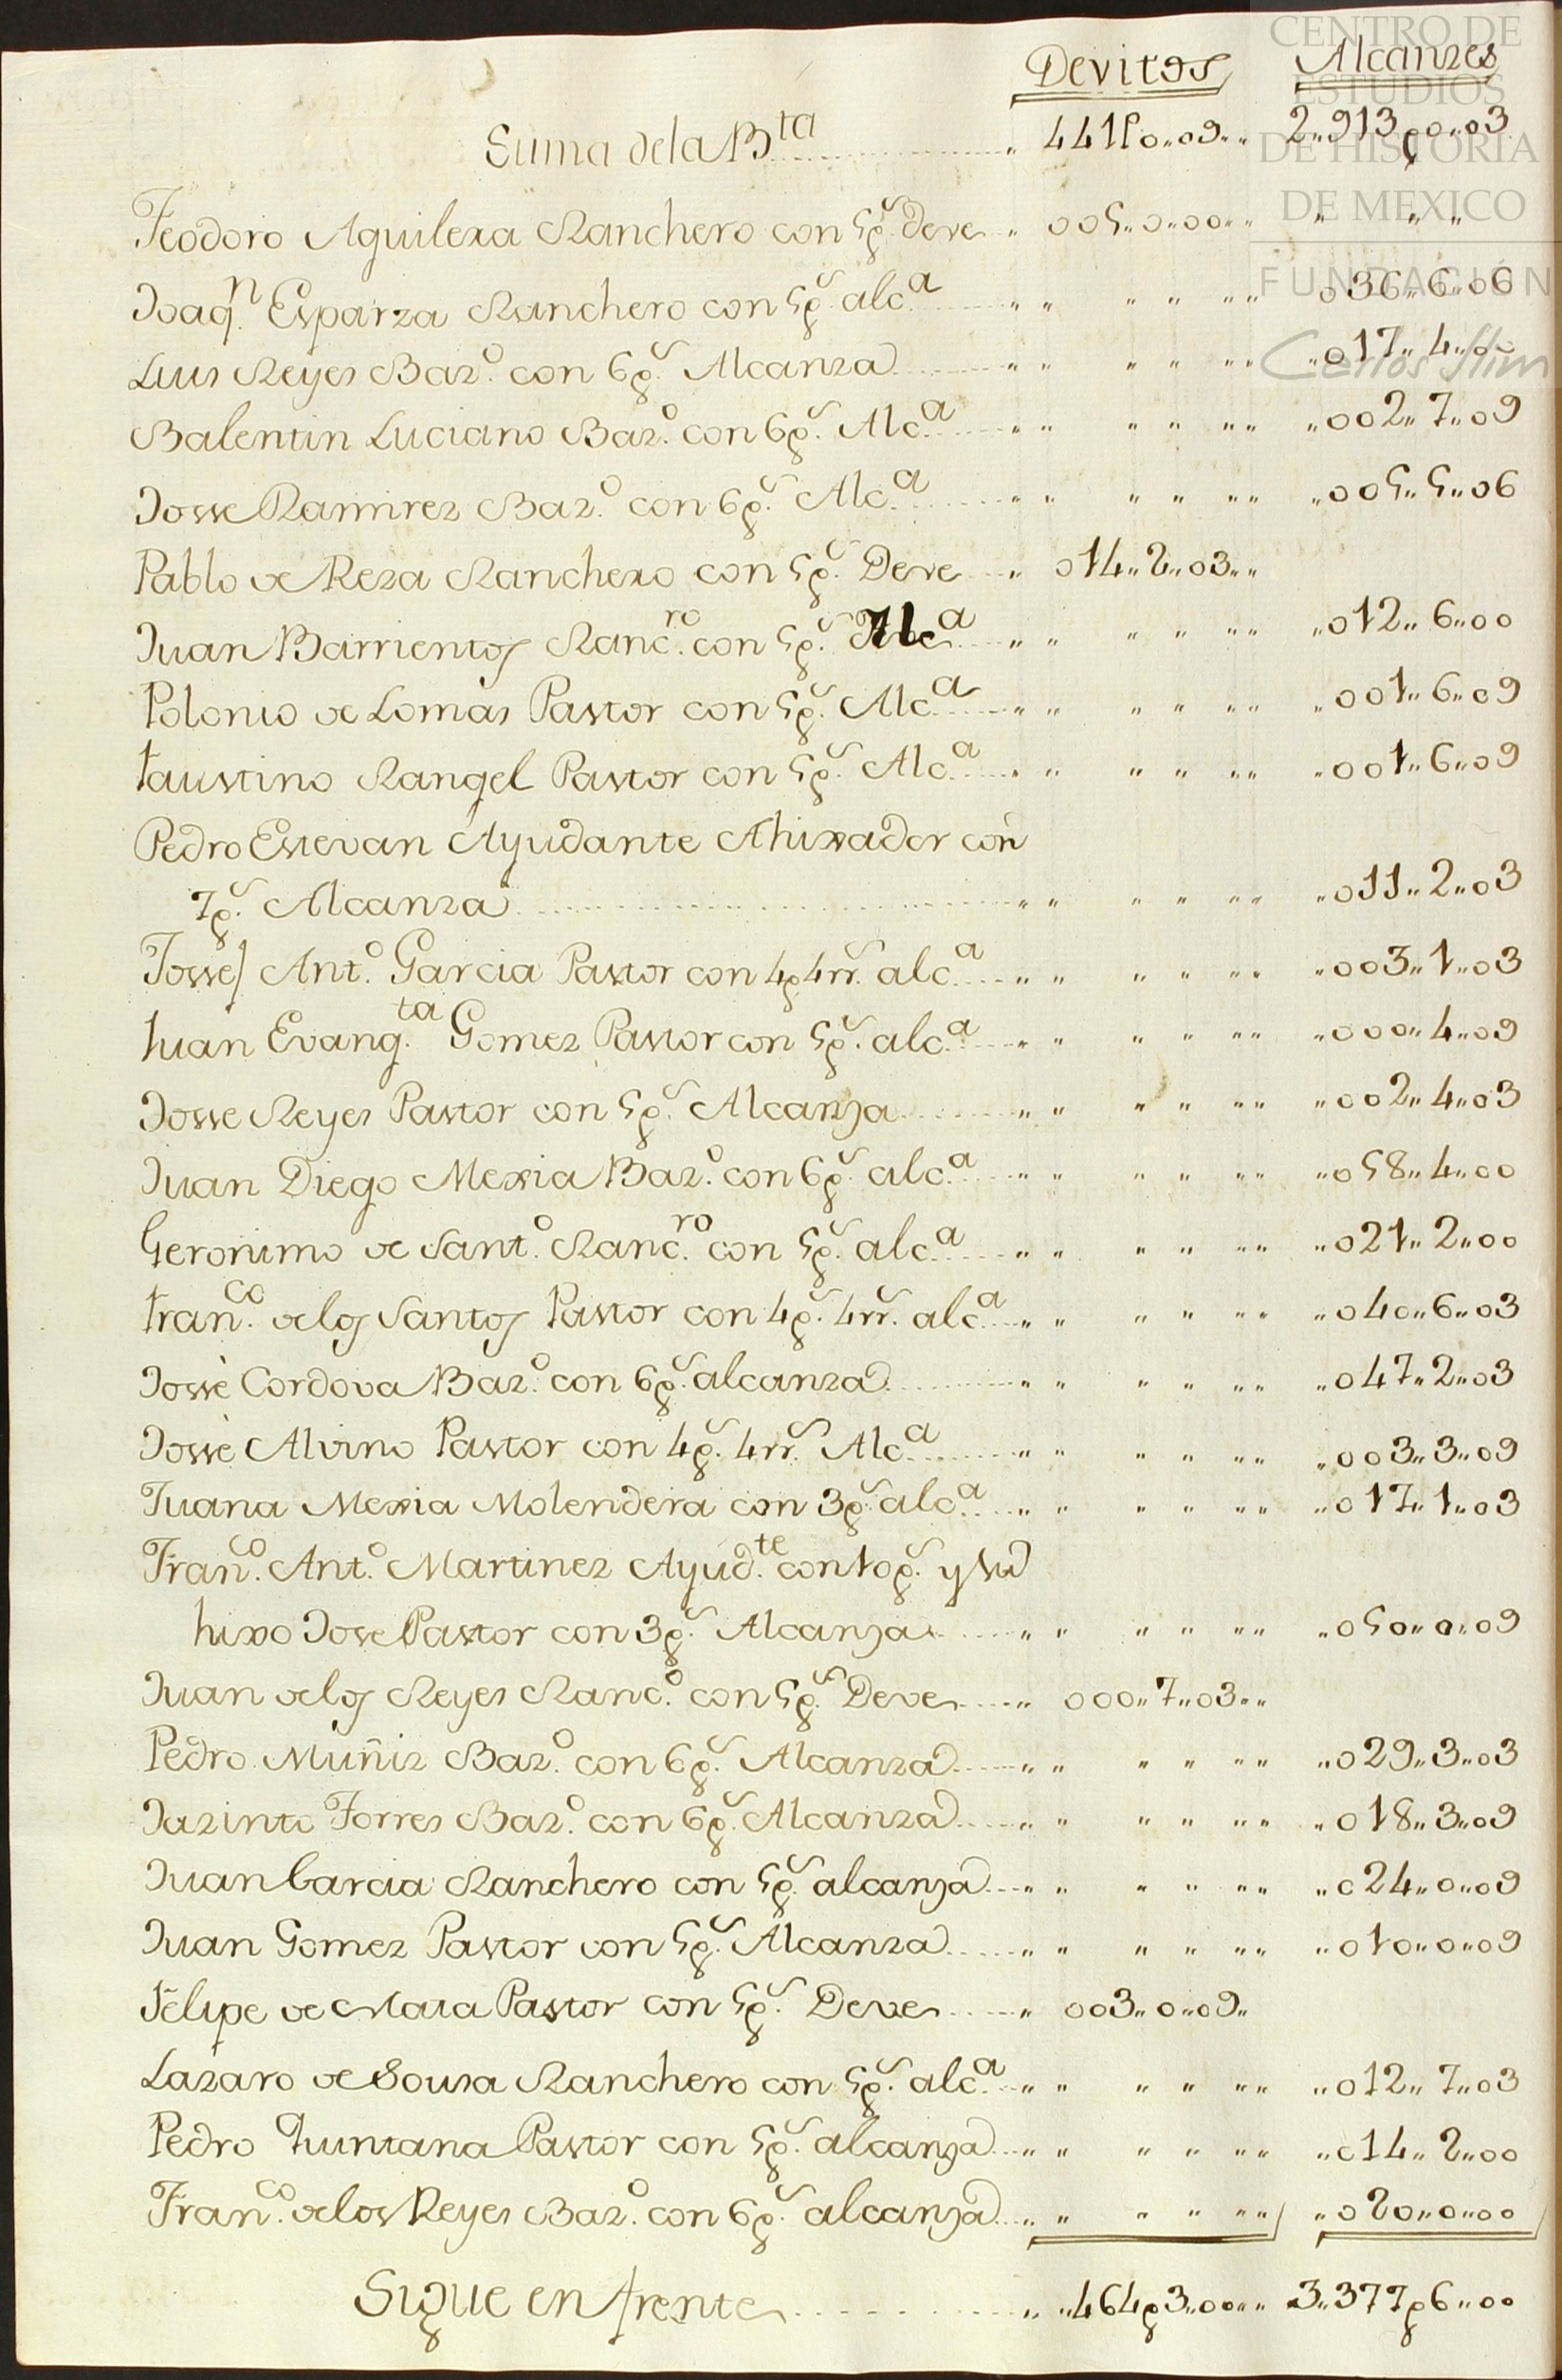 Devitos Alcanzes
Suma dela B.ta 441p0..09.. 2..913p0..03
Teodoro Aguilera Ranchero con 5p.s Deve 005..0..00..
Joaq.n Esparza Ranchero con 5p.s alc.a 036..6..06
Luis Reyes Baz.o con 6p.s Alcanza 017..4..00
Balentin Luciano Baz.o con 6p.s Alc.a 002..7..09
Josse Ramirez Baz.o con 6p.s Alc.a 005..5..06
Pablo de Reza Ranchero con 5p.s Deve 014..2..03..
Juan Barrientos Ranc.ro con 5p.s Alc.a 012..6..00
Polonio de Lomas Pastor con 5p.s Alc.a 001..6..09
Faustino Rangel Pastor con 5p.s Alc.a 001..6..09
Pedro Estevan Ayudante Ahixador con
7p.s Alcanza 011..2..03
Josse Ant.o Garcia Pastor con 4p4rr.s alc.a 003..1..03
Juan Evang.ta Gomez Pastor con 5p.s alc.a 000..4..09
Josse Reyes Pastor con 5p.s Alcanza 002..4..03
Juan Diego Mexia Baz.o con 6p.s alc.a 058..4..00
Geronimo de Sant.o Ranc.ro con 5p.s alc.a 021..2..00
Fran.co delos Santos Pastor con 4p.s 4rr.s alc.a 040..6..03
Jossè Cordova Baz.o con 6p.s alcanza 047..2..03
Jossè Alvino Pastor con 4p.s 4rr.s Alc.a 003..3..09
Juana Mexia Molendera con 3p.s alc.a 017..1..03
Fran.co Ant.o Martinez Ayud.te con 10p.s y su
hixo Jose Pastor con 3p.s Alcanza 050..0..09
Juan delos Reyes Ranc.o con 5p.s Deve 000..7..03..
Pedro Muñiz Baz.o con 6p.s Alcanza 029..3..03
Jazinto Torres Baz.o con 6p.s Alcanza 018..3..09
Juan Garcia Ranchero con 5p.s alcanza 024..0..09
Juan Gomez Pastor con 5p.s Alcanza 010..0..09
Felipe de Mata Pastor con 5p.s Deve 003..0..09..
Lazaro de Sousa Ranchero con 5p.s alc.a 012..7..03
Pedro Quintana Pastor con 5p.s alcanza 014..2..00
Fran.co delos Reyes Baz.o con 6p.s alcanza 020..0..00
Sigue en frente 464p3..00.. 3..377p6..00
CENTRO DE
ESTUDIOS
DE HISTORIA
DE MEXICO
FUNDACIÓN
Carlos Slim